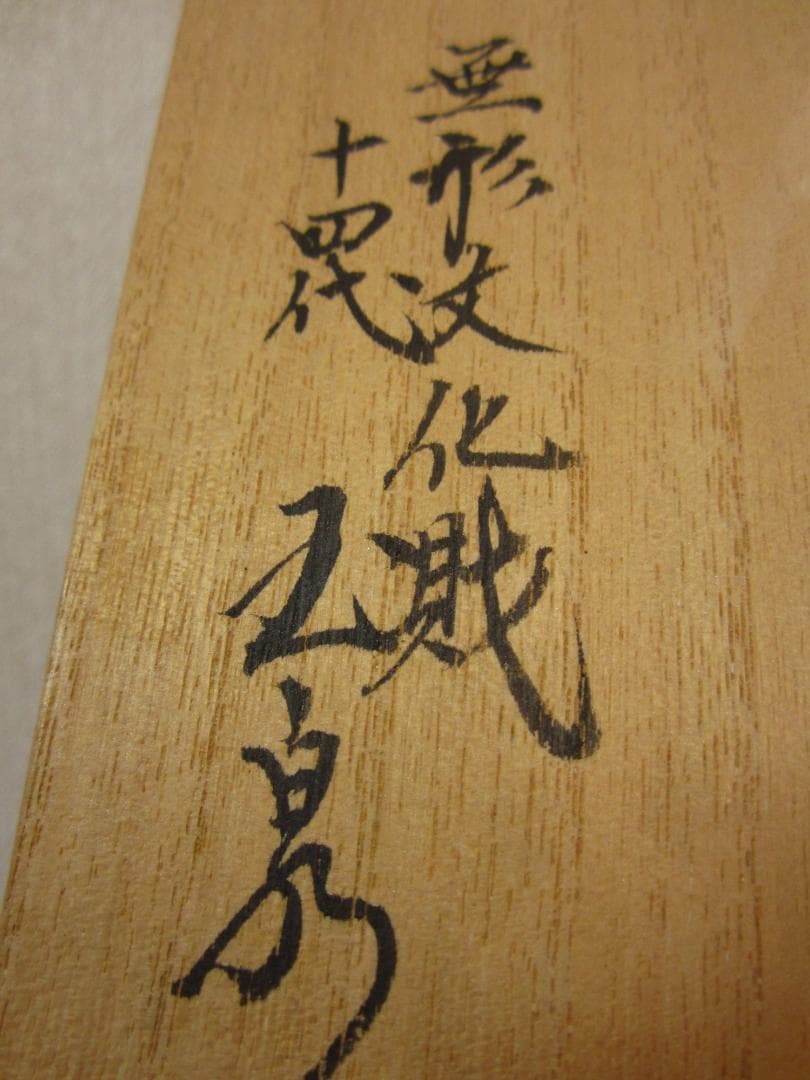 無形文化財
十四代
玉泉